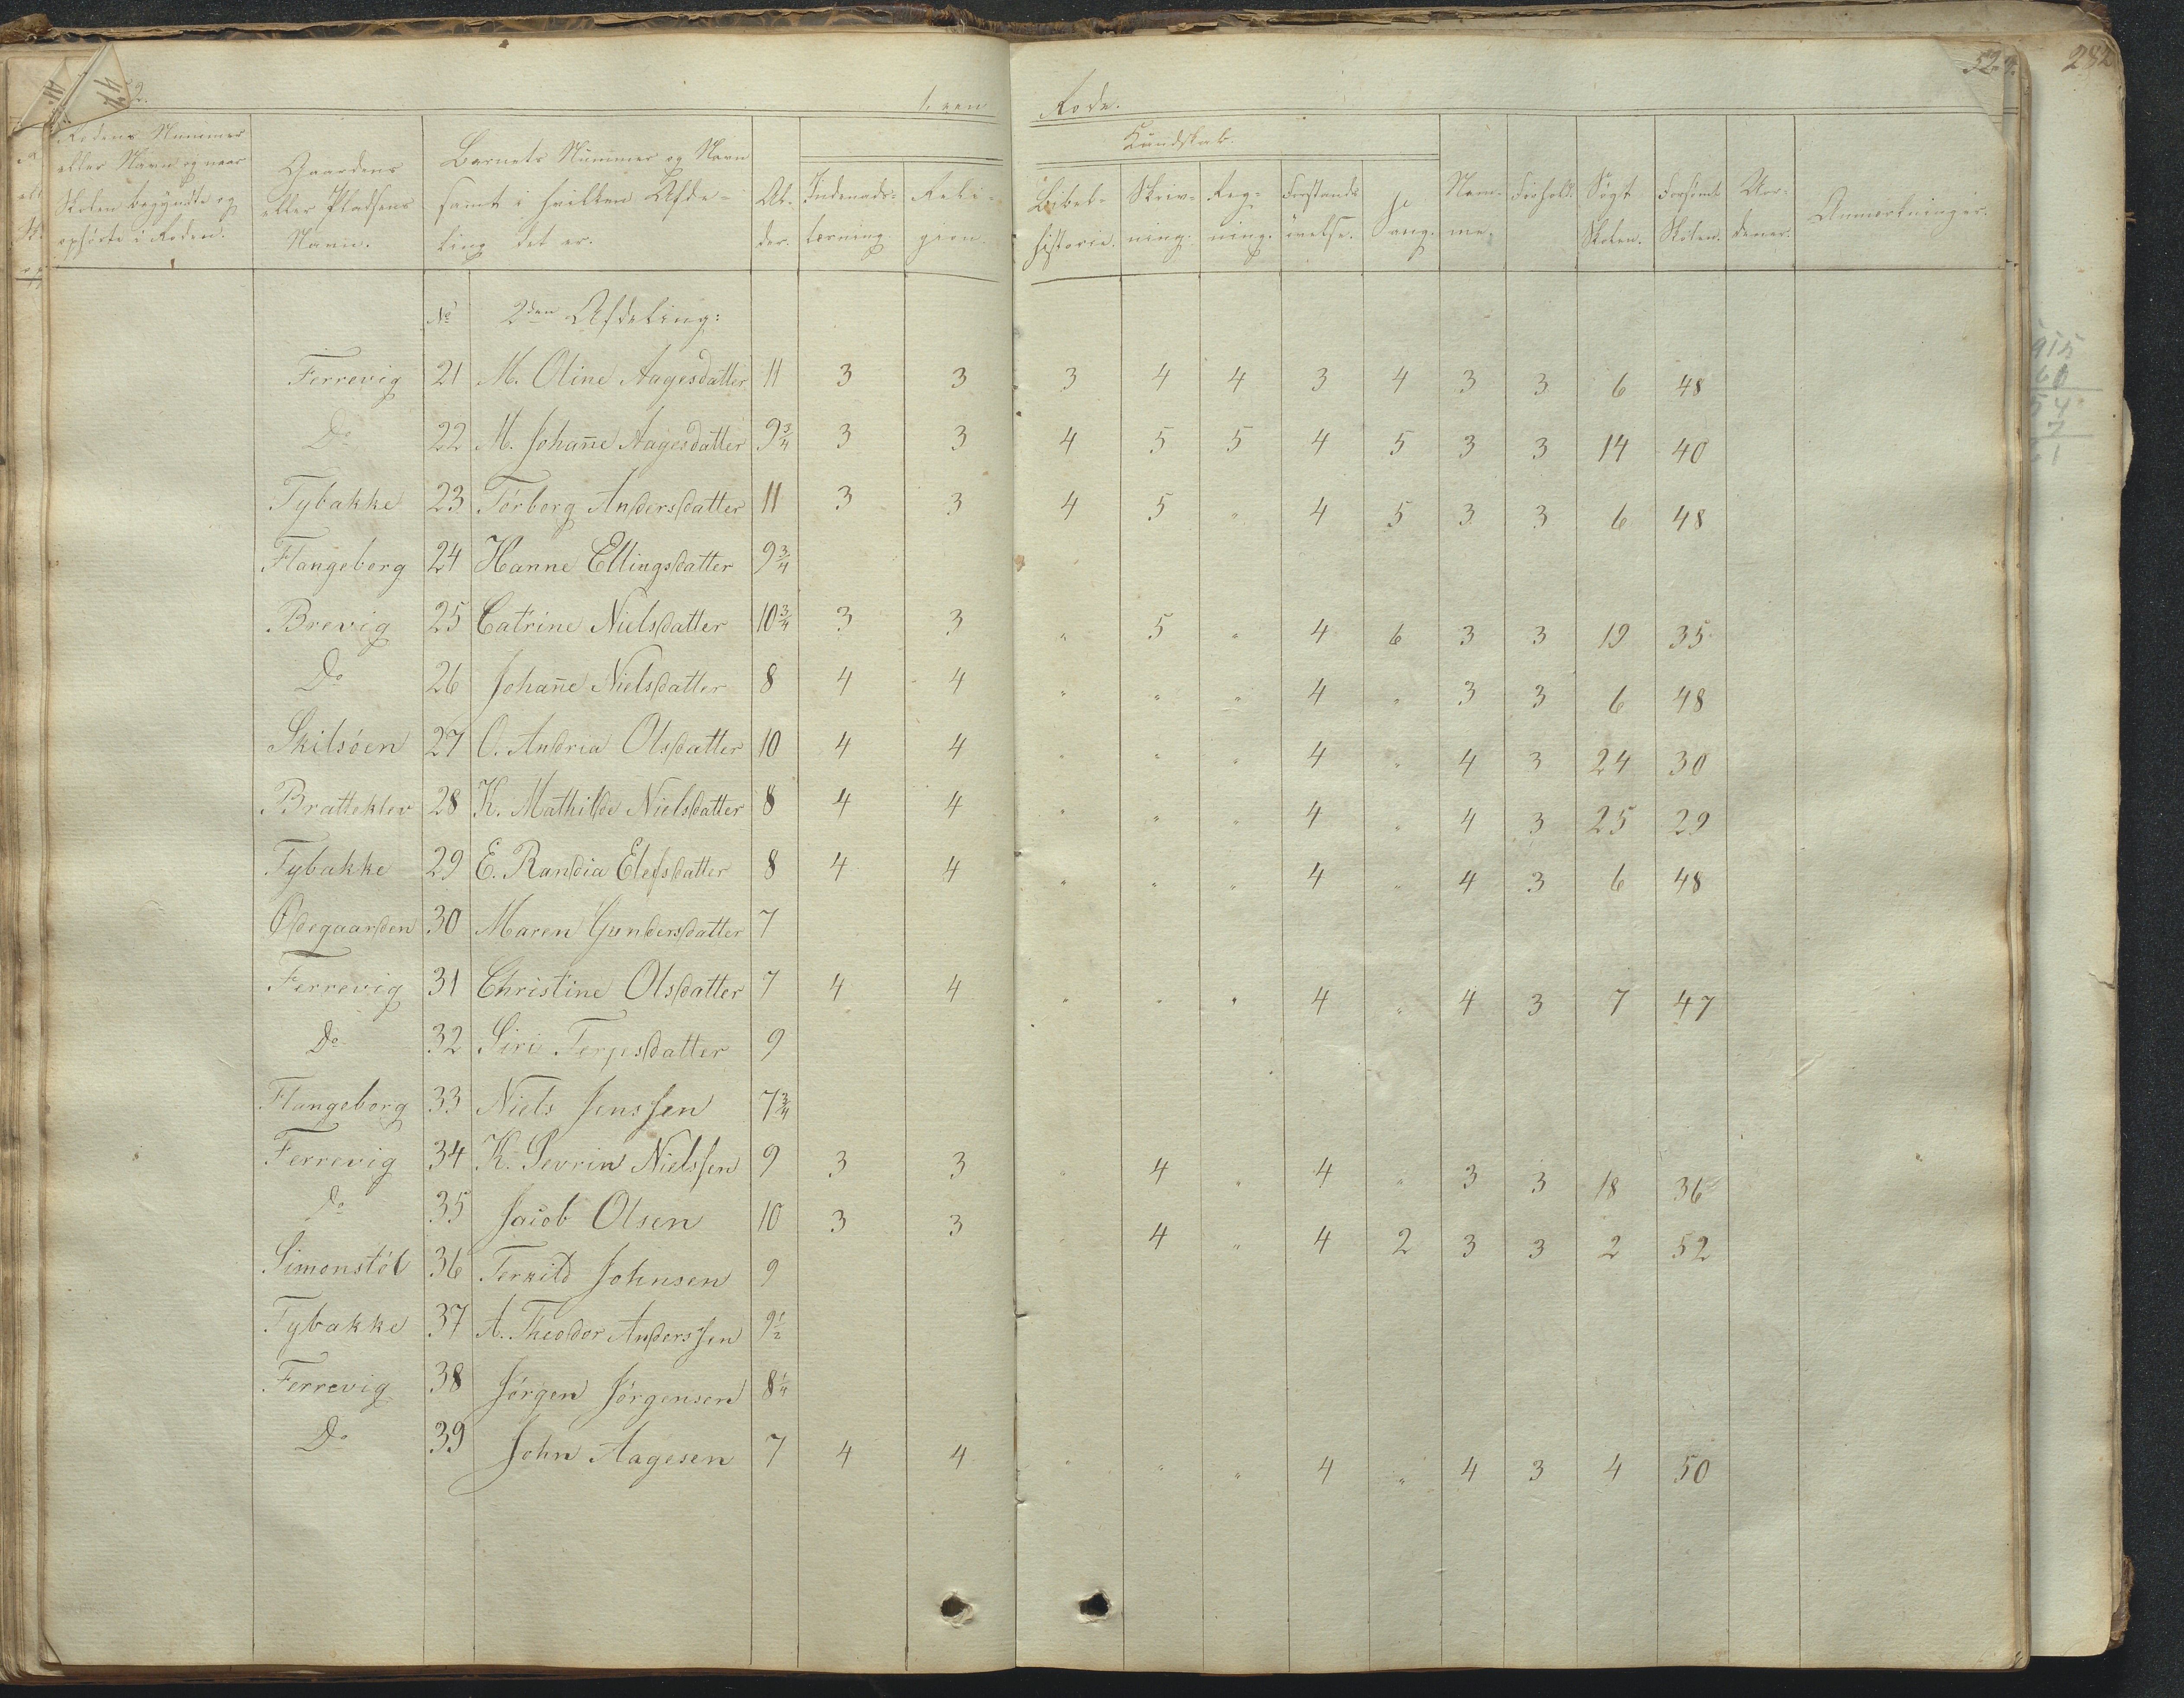 1. een Rode.
52.
282
Rodens Nummer eller Navn og naar Skolen begyndte og ophørte i Roden.
Gaardens eller Pladsens Navn.
Barnets Nummer og Navn samt i hvilken Afdeling det er.
Alder.
Indenadslæsning
Religion
Kundskab.
Bibelhistorie.
Skrivning.
Regning.
Forstandsøvelse.
Sang.
Nemme.
Forhold.
Søgt Skolen.
Forsømt Skolen.
Uordener.
Anmerkninger.
No 2den Afdeling:
Ferrevig 21 M. Oline Aagesdatter 11 3 3 3 4 4 3 4 3 3 6 48
Do 22 M. Johan̄e Aagesdatter 9¾ 3 3 4 5 5 4 5 3 3 14 40
Tybakke 23 Torborg Andersdatter 11 3 3 4 5 " 4 5 3 3 6 48
Flangeborg 24 Hanne Ellingsdatter 9¾
Brevig 25 Catrine Nielsdatter 10¾ 3 3 " 5 " 4 6 3 3 19 35
Do 26 Johan̄e Nielsdatter 8 4 4 " " " 4 " 3 3 6 48
Skilsøen 27 O. Andria Olsdatter 10 4 4 " " " 4 " 4 3 24 30
Bratteklev 28 K. Mathilde Nielsdatter 8 4 4 " " " 4 " 4 3 25 29
Tybakke 29 E. Randia Elefsdatter 8 4 4 " " " 4 " 4 3 6 48
Ødegaarden 30 Maren Gundersdatter 7
Ferrevig 31 Christine Olsdatter 7 4 4 " " " 4 " 4 3 7 47
Do 32 Siri Terjesdatter 9
Flangeborg 33 Niels Jenssen 7¾
Ferrevig 34 K. Sevrin Nielssen 9 3 3 " 4 " 4 " 3 3 18 36
Do 35 Jacob Olsen 10 3 3 4 " 4 2 3 3 2 52
Simonstøl 36 Terkild Johnsen 9
Tybakke 37 A. Theodor Anderssen 9½
Ferrevig 38 Jørgen Jørgensen 8¼
Do 39 John Aagesen 7 4 4 " " " 4 " 4 3 4 50